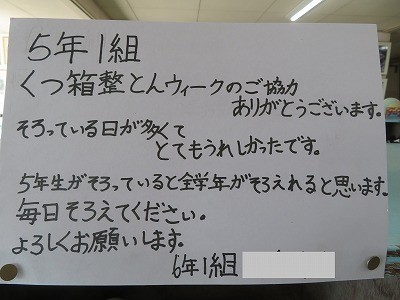 5年1組
くつ箱整とんウィークのご協力
ありがとうございます。
そろっている日が多くて
とてもうれしかったです。
5年生がそろっていると全学年がそろえれると思います。
毎日そろえてください。
よろしくお願いします。
6年1組